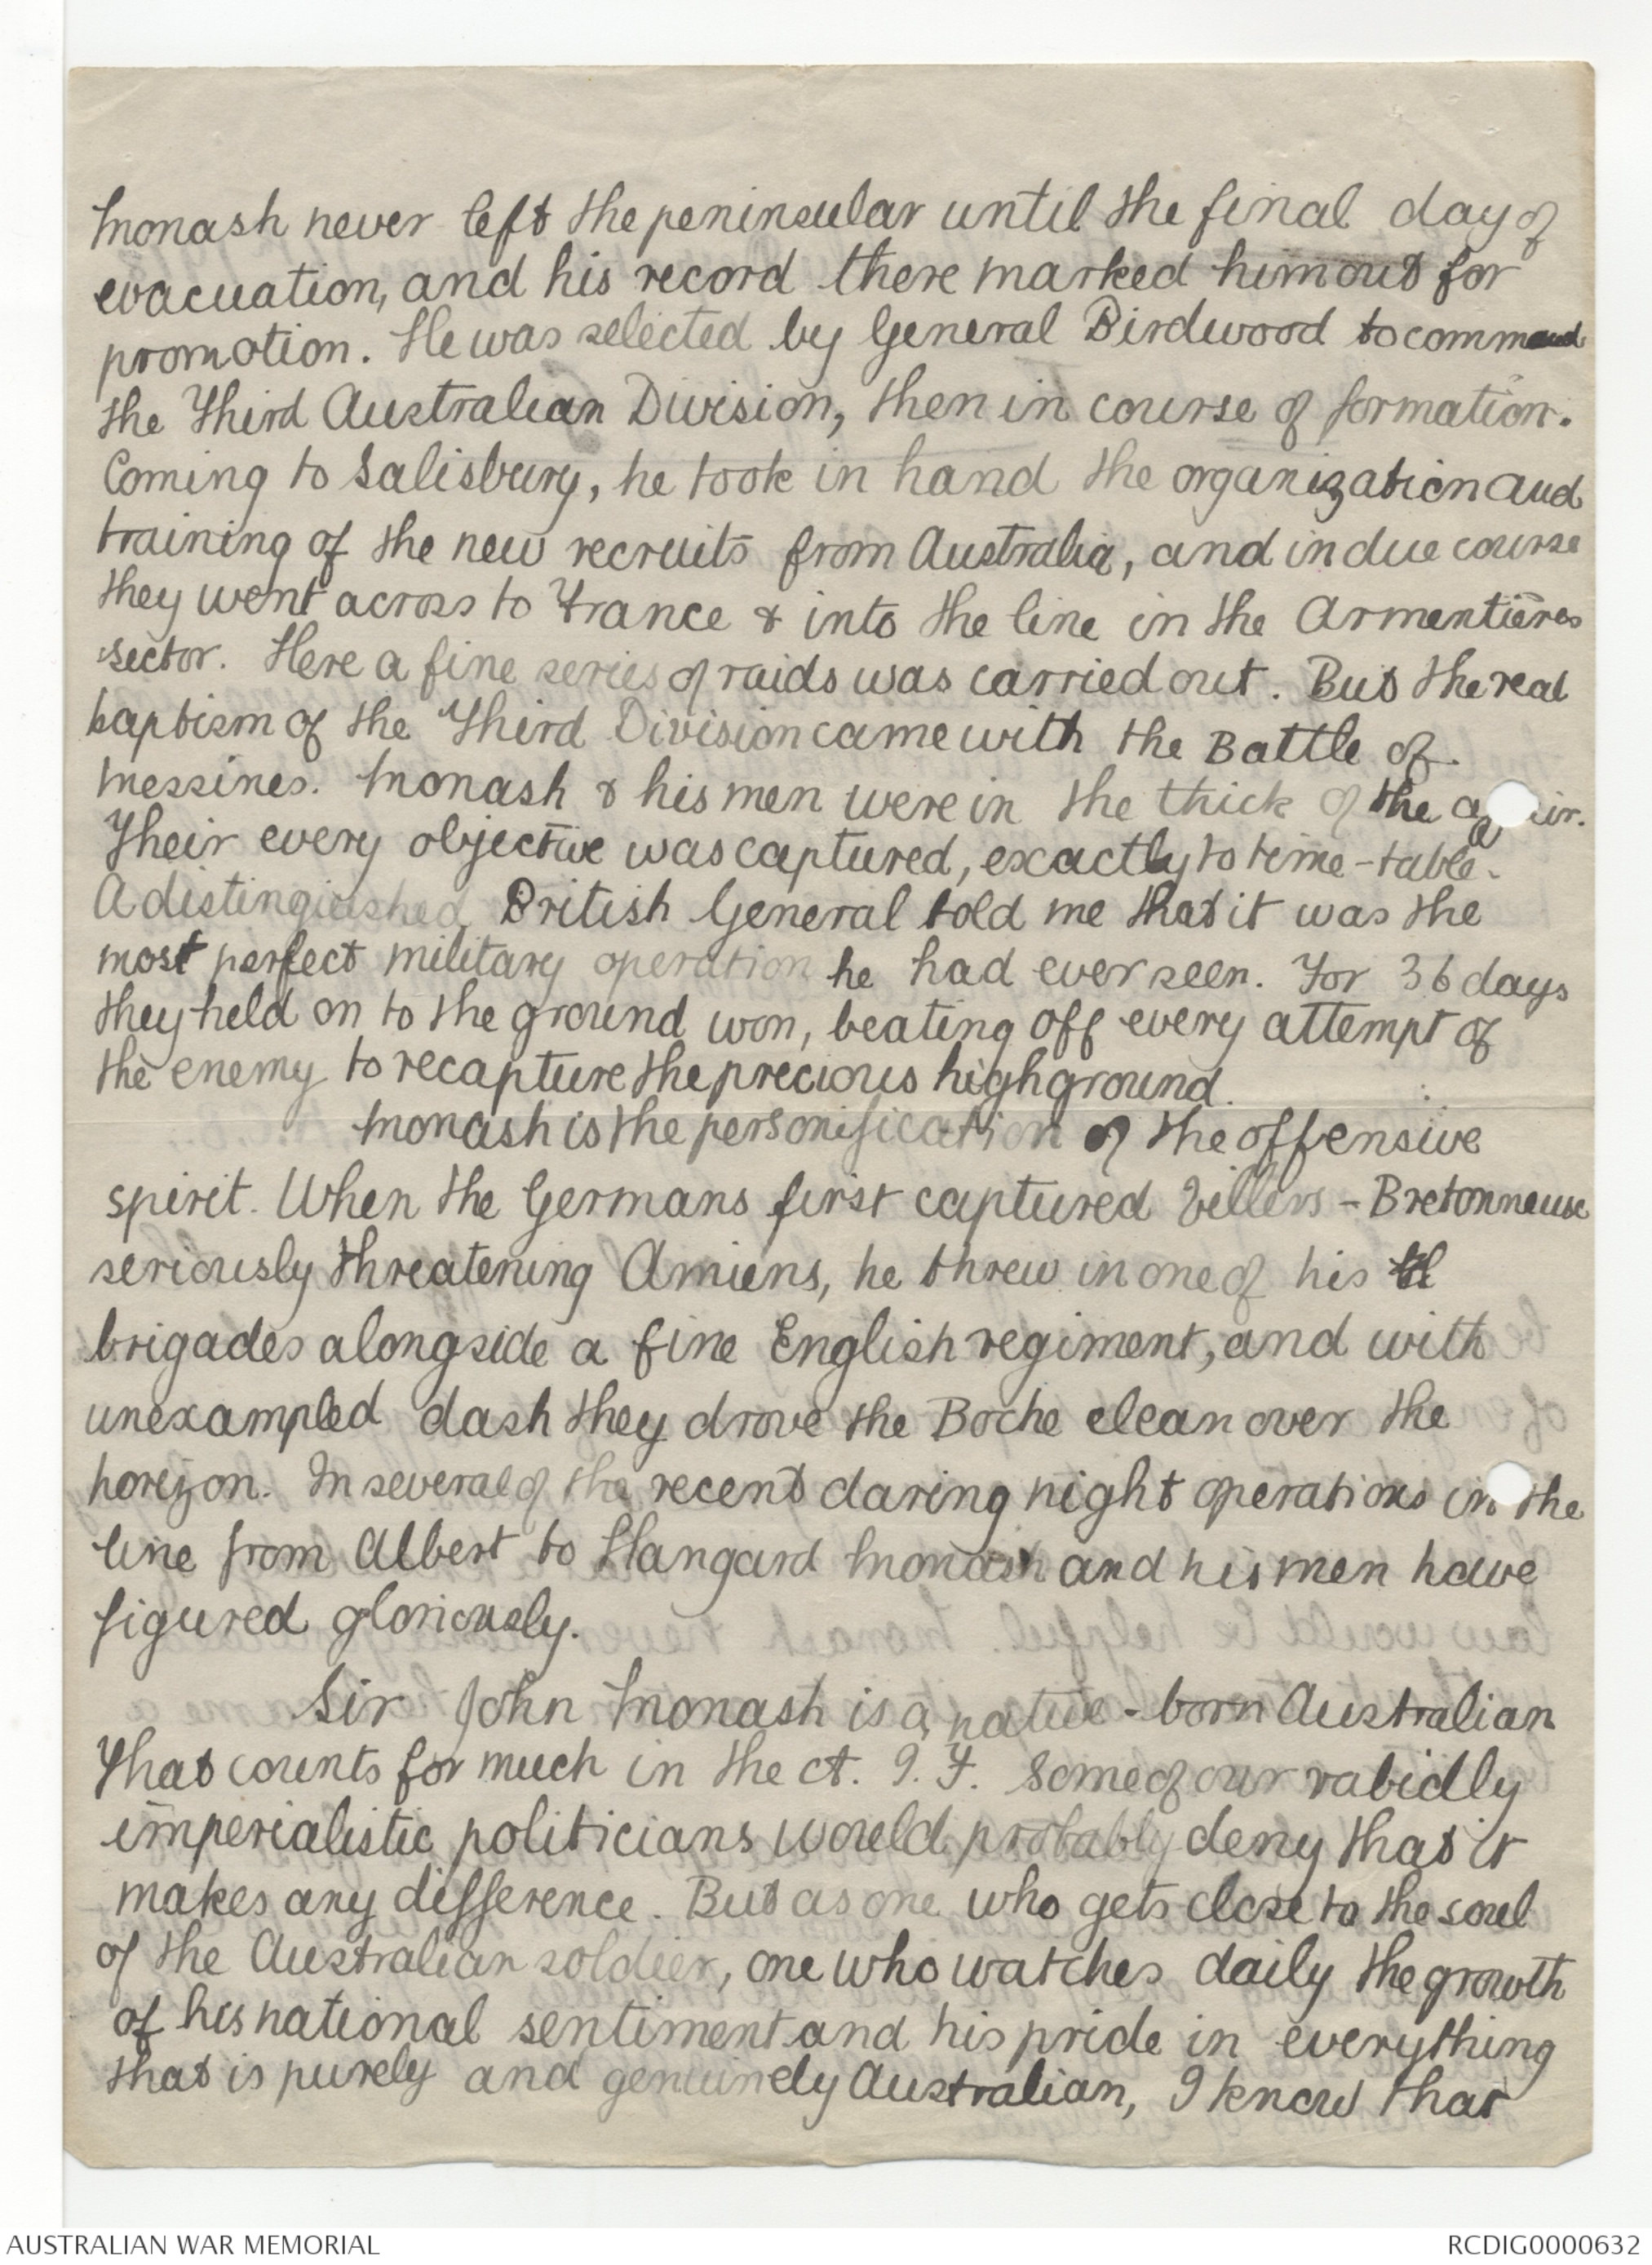 Monash never left the peninsular until the final day of
evacuation, and his record there marked him out for
promotion. He was selected by General Birdwood to command
the Third Australian Division, then in course of formation.
Coming to Salisbury, he took in hand the organization and
training of the new recruits from Australia, and in due course
they went across to France & into the line in the Armentières
sector. Here a fine series of raids was carried out. But the real
baptism of the Third Division came with the Battle of
Messines. Monash & his men were in the thick of the
Their every objective was captured, exactly to time-table.
A distinguished British General told me that it was the
most perfect military operation he had ever seen. For 36 days
they held on to the ground won, beating off every attempt of
the enemy to recapture the precious high ground.
Monash is the personification of the offensive
spirit. When the Germans first captured Villers-Bretonneux
seriously threatening Amiens, he threw in one of his
brigades alongside a fine English regiment, and with
unexampled dash they drove the Boche clean over the
horizon. In several of the recent daring night operations in the
line from Albert to Hangard Monash and his men have
figured gloriously.
Sir John Monash is a native-born Australian
That counts for much in the A. I. F. Some of our rabidly
imperialistic politicians would probably deny that it
makes any difference. But as one who gets close to the soul
of the Australian soldier, one who watches daily the growth
of his national sentiment and his pride in everything
that is purely and genuinely Australian, I know that
AUSTRALIAN WAR MEMORIAL
RCDIG0000632